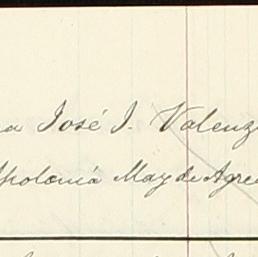 a José J. Valenz
polonia May de Agre